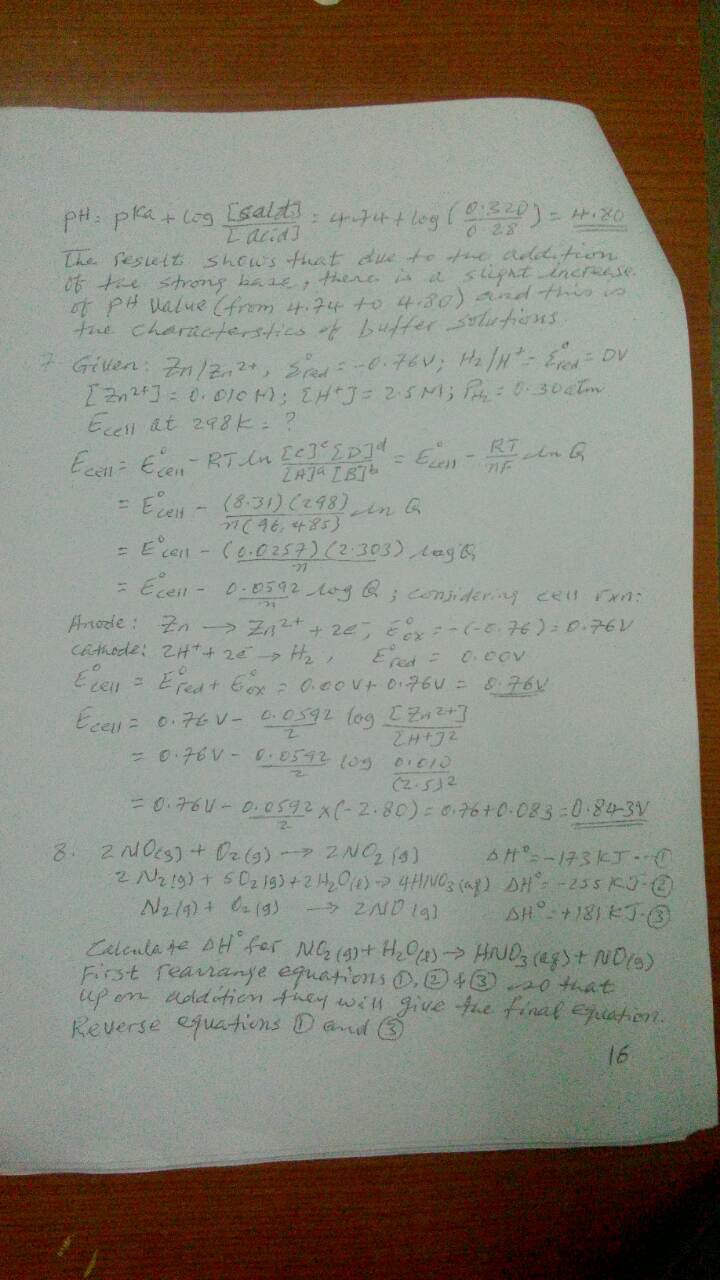 pH = pKa + log [salt]/[acid] = 4.74 + log (0.320/0.28) = 4.80
The results shows that due to the addition
of the strong base, there is a slight increase
of PH value (from 4.74 to 4.80) and this is
the characterstics of buffer solutions
7. Given: Zn/Zn²⁺, Ɛ°red = -0.76V; H2/H⁺ = Ɛ°red = 0V
[Zn²⁺] = 0.010 M; [H⁺] = 2.5 M; PH2 = 0.30 atm
Ecell at 298K = ?
Ecell = E°cell - RT ln [C]ᶜ[D]ᵈ/[A]ᵃ[B]ᵇ = E°cell - RT/nF ln Q
= E°cell - (8.31)(298)/n(96,485) ln Q
= E°cell - (0.0257)(2.303)/n log Q
= E°cell - 0.0592/n log Q; considering cell rxn:
Anode: Zn → Zn²⁺ + 2e⁻, E°ox = -(-0.76) = 0.76V
Cathode: 2H⁺ + 2e⁻ → H2, E°red = 0.00V
E°cell = E°red + E°ox = 0.00V + 0.76V = 0.76V
Ecell = 0.76V - 0.0592/2 log [Zn²⁺]/[H⁺]²
= 0.76V - 0.0592/2 log 0.010/(2.5)²
= 0.76V - 0.0592/2 x (-2.80) = 0.76 + 0.083 = 0.843V
8. 2NO(g) + O2(g) → 2NO2(g) ΔH° = -173 KJ --①
2N2(g) + 5O2(g) + 2H2O(l) → 4HNO3(aq) ΔH° = -255 KJ -②
N2(g) + O2(g) → 2NO(g) ΔH° = +181 KJ -③
Calculate ΔH° for NO2(g) + H2O(l) → HNO3(aq) + NO(g)
First rearrange equations ①, ② & ③ so that
up on addition they will give the final equation.
Reverse equations ① and ③
16